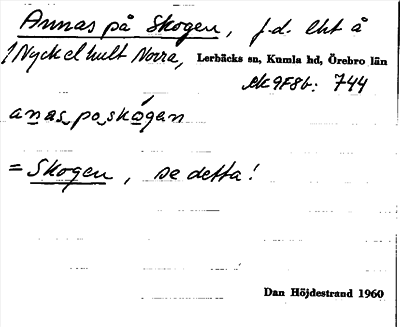 Annas på Skogen, f.d. lht å
1/Nyckelhult Norra, Lerbäcks sn, Kumla hd, Örebro län
ek 9F8b: 744
anas po skógen
= Skogen, se detta!
Dan Höjdestrand 1960